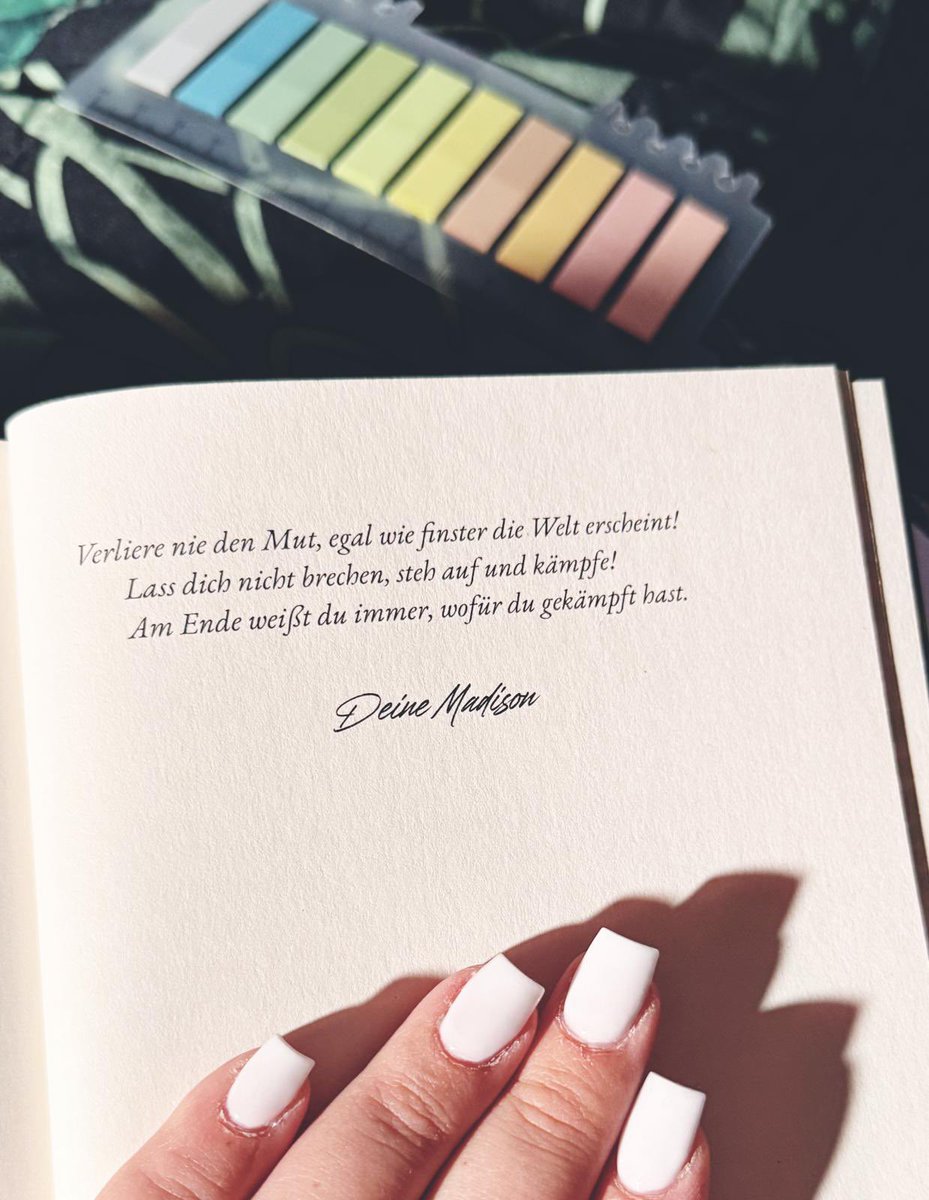 Verliere nie den Mut, egal wie finster die Welt erscheint!
Lass dich nicht brechen, steh auf und kämpfe!
Am Ende weißt du immer, wofür du gekämpft hast.
Deine Madison